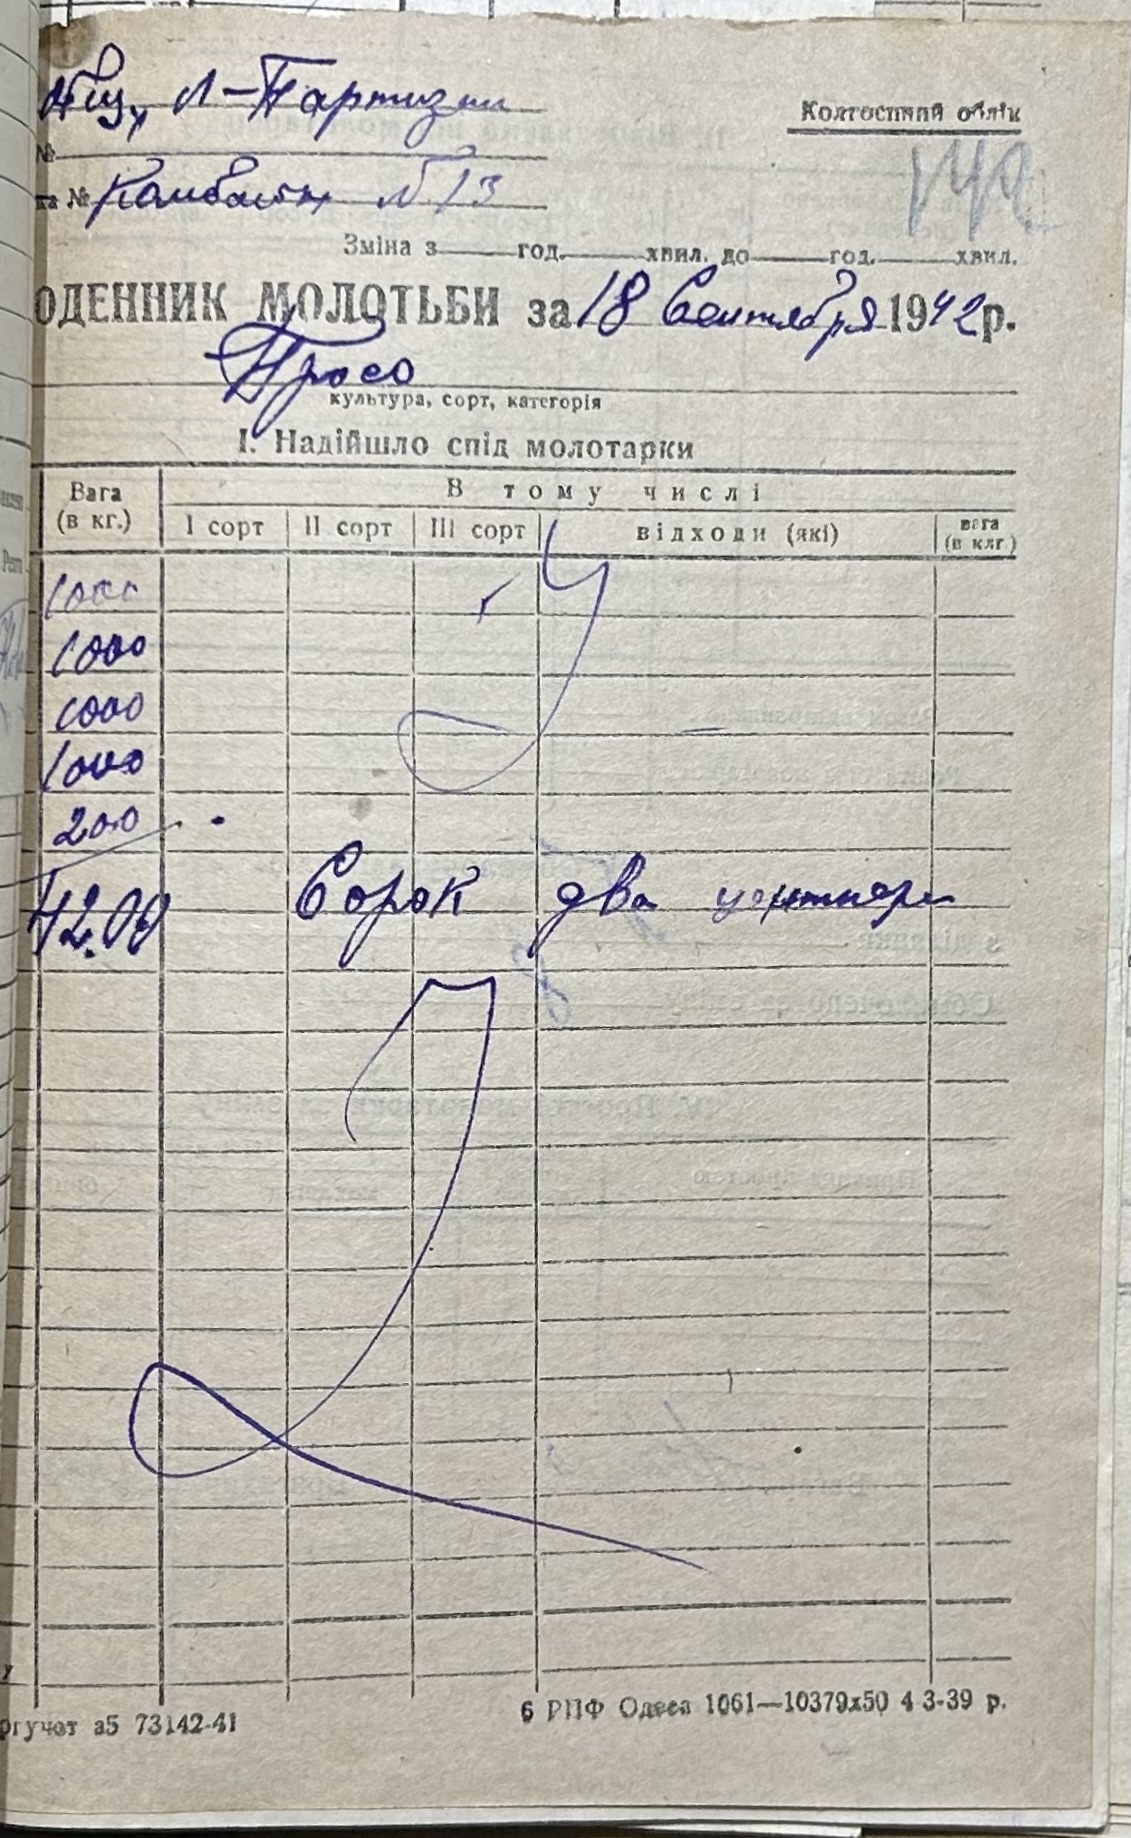 Общ. Л-Партизан
Колгоспний облік
№
ка № Комбайн № 13
140
Зміна з год. хвил. до год. хвил.
ОДЕННИК МОЛОТЬБИ за 18 Сентября 1942 р.
Просо
культура, сорт, категорія
I. Надійшло спід молотарки
Вага (в кг.) В тому числі
I сорт II сорт III сорт відходи (які) вага (в клг.)
1000
1000
1000
1000
200
42.00 Сорок два центнера
ргучот а5 73142-41
6 РПФ Одеса 1061—10379х50 4 3-39 р.